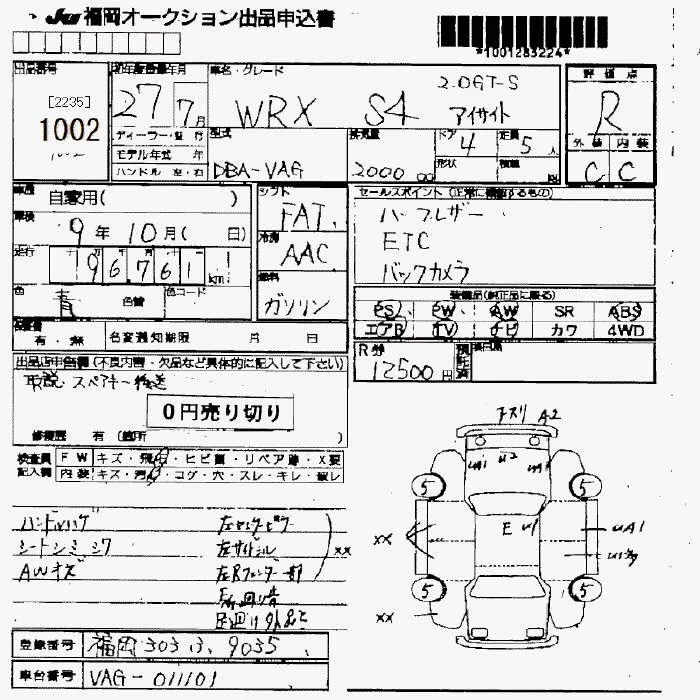 JU 福岡オークション出品申込書
*1001283224*
出品番号 初年度登録年月 車名・グレード 評価点
[2235]
1002
27年 7月
2.0GT-S
WRX S4 アイサイト
R
ディーラー・並行 型式 排気量 ドア 4 定員 5人 外装 内装
モデル年式 年
ハンドル 左・右 DBA-VAG 2000 cc 形状 積載 kg C C
車歴 自家用( ) シフト FAT セールスポイント(正常に機能するもの)
車検 9年 10月( 日) 冷房 AAC ハーフレザー
ETC
走行 96,761 km 燃料 ガソリン バックカメラ
色 青 色替 色コード 装備品(純正品に限る)
PS PW AW SR ABS
エアB TV ナビ カワ 4WD
保証書 有・無 名変通知期限 月 日
R券 12500円 預託済
出品店申告欄(不良内容・欠品など具体的に記入して下さい)
取説・スペアキー後送
0円売り切り
修復歴 有 (箇所 )
検査員記入欄
FW キズ・飛石・ヒビ割・リペア跡・X要
内装 キズ・汚れ・コゲ・穴・スレ・キレ・破レ
ハンドルハゲ 左センターピラー
シートシミシワ 左サイドシル ××
AWキズ 左Rフェンダー部
足廻り音
足廻り外品
A2
UA1 U2
E U1
UA1
××
××
5 5
5 5
登録番号 福岡 303 ほ 9035
車台番号 VAG-011101